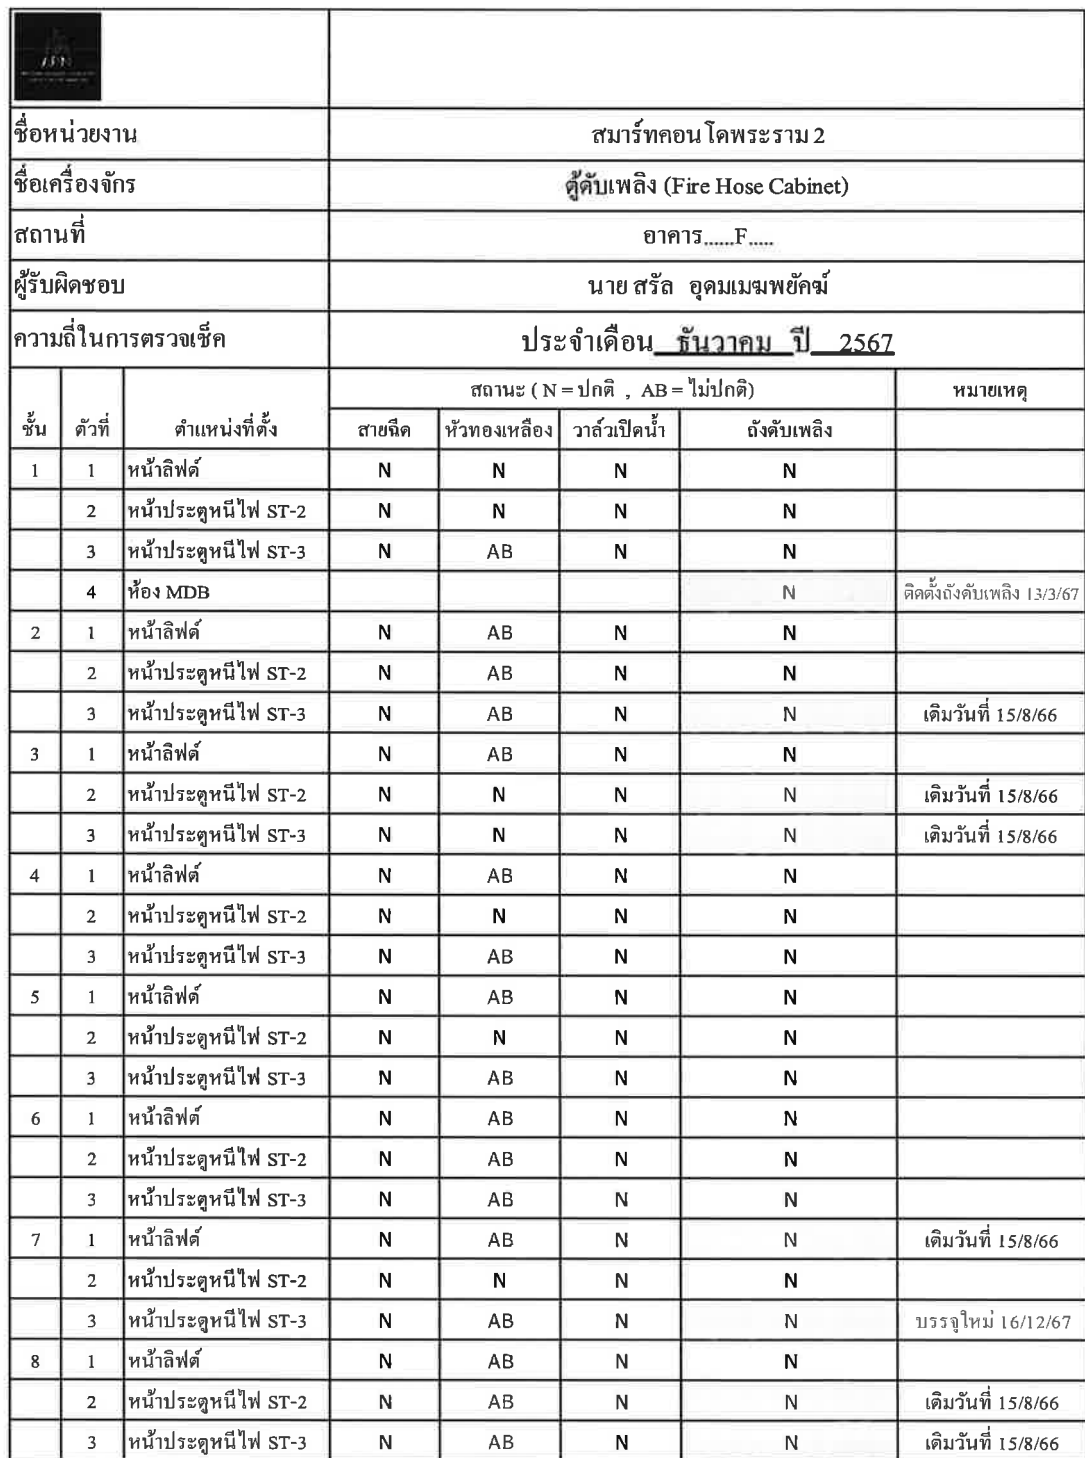 ชื่อหน่วยงาน สมาร์ทคอนโดพระราม 2
ชื่อเครื่องจักร ตู้ดับเพลิง (Fire Hose Cabinet)
สถานที่ อาคาร......F.....
ผู้รับผิดชอบ นาย สรัล อุดมเมฆพยัคฆ์
ความถี่ในการตรวจเช็ค ประจำเดือน ธันวาคม ปี 2567
ชั้น ตัวที่ ตำแหน่งที่ตั้ง สถานะ ( N = ปกติ , AB = ไม่ปกติ) หมายเหตุ
สายฉีด หัวทองเหลือง วาล์วเปิดน้ำ ถังดับเพลิง
1 1 หน้าลิฟต์ N N N N
2 หน้าประตูหนีไฟ ST-2 N N N N
3 หน้าประตูหนีไฟ ST-3 N AB N N
4 ห้อง MDB N ติดตั้งถังดับเพลิง 13/3/67
2 1 หน้าลิฟต์ N AB N N
2 หน้าประตูหนีไฟ ST-2 N AB N N
3 หน้าประตูหนีไฟ ST-3 N AB N N เติมวันที่ 15/8/66
3 1 หน้าลิฟต์ N AB N N
2 หน้าประตูหนีไฟ ST-2 N N N N เติมวันที่ 15/8/66
3 หน้าประตูหนีไฟ ST-3 N N N N เติมวันที่ 15/8/66
4 1 หน้าลิฟต์ N AB N N
2 หน้าประตูหนีไฟ ST-2 N N N N
3 หน้าประตูหนีไฟ ST-3 N AB N N
5 1 หน้าลิฟต์ N AB N N
2 หน้าประตูหนีไฟ ST-2 N N N N
3 หน้าประตูหนีไฟ ST-3 N AB N N
6 1 หน้าลิฟต์ N AB N N
2 หน้าประตูหนีไฟ ST-2 N AB N N
3 หน้าประตูหนีไฟ ST-3 N AB N N
7 1 หน้าลิฟต์ N AB N N เติมวันที่ 15/8/66
2 หน้าประตูหนีไฟ ST-2 N N N N
3 หน้าประตูหนีไฟ ST-3 N AB N N บรรจุใหม่ 16/12/67
8 1 หน้าลิฟต์ N AB N N
2 หน้าประตูหนีไฟ ST-2 N AB N N เติมวันที่ 15/8/66
3 หน้าประตูหนีไฟ ST-3 N AB N N เติมวันที่ 15/8/66